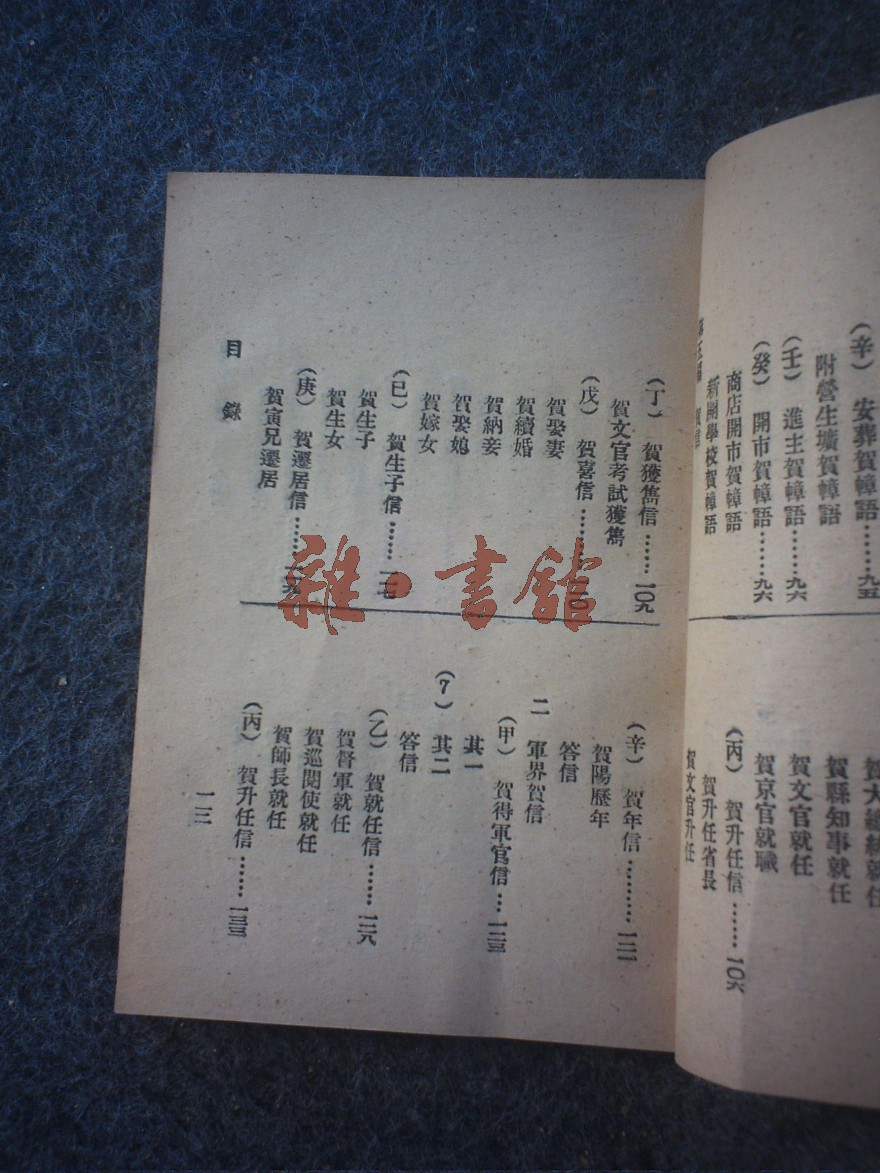 (辛) 安葬賀幛語……九五
附營生壙賀幛語
(壬) 進主賀幛語……九六
(癸) 開市賀幛語……九六
商店開市賀幛語
新開學校賀幛語
賀縣知事就任
賀文官就任
賀京官就職
(丙) 賀升任信……一〇六
賀升任省長
賀文官升任
(丁) 賀獲雋信……一〇九
賀文官考試獲雋
(戊) 賀喜信……一一〇
賀娶妻
賀續婚
賀納妾
賀娶媳
賀嫁女
(已) 賀生子信……一一七
賀生子
賀生女
(庚) 賀遷居信……一一九
賀寅兄遷居
(辛) 賀年信……一二一
賀陽歷年
答信
二 軍界賀信
(甲) 賀得軍官信…一二三
其一
(7) 其二
答信
(乙) 賀就任信……一二八
賀督軍就任
賀巡閱使就任
賀師長就任
(丙) 賀升任信……一三三
目 錄
一三
雜·書館